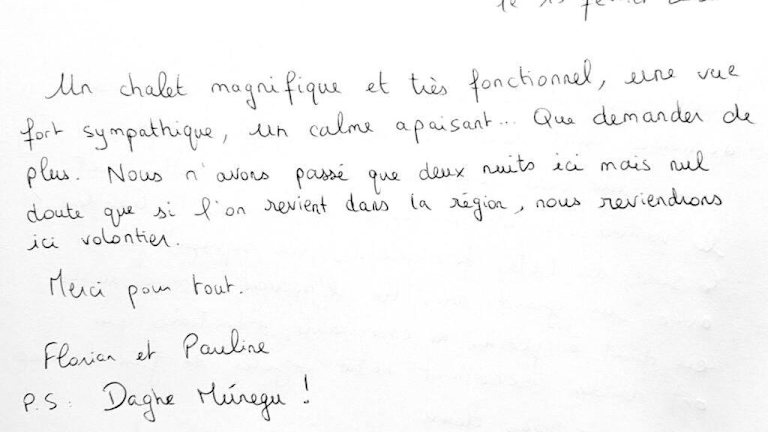 le février
Un chalet magnifique et très fonctionnel, une vue
fort sympathique, un calme apaisant... Que demander de
plus. Nous n'avons passé que deux nuits ici mais nul
doute que si l'on revient dans la région, nous reviendrons
ici volontier.
Merci pour tout.
Florian et Pauline
P.S: Daghe Múnegu !